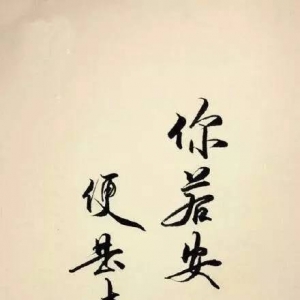 你若安
便是